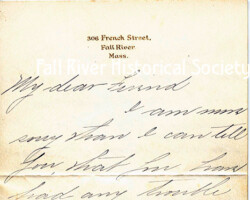 306 French Street,
Fall River
Mass.
Fall River Historical Society
My dear friend
I am more
sorry than I can tell
you, that you have
had any trouble